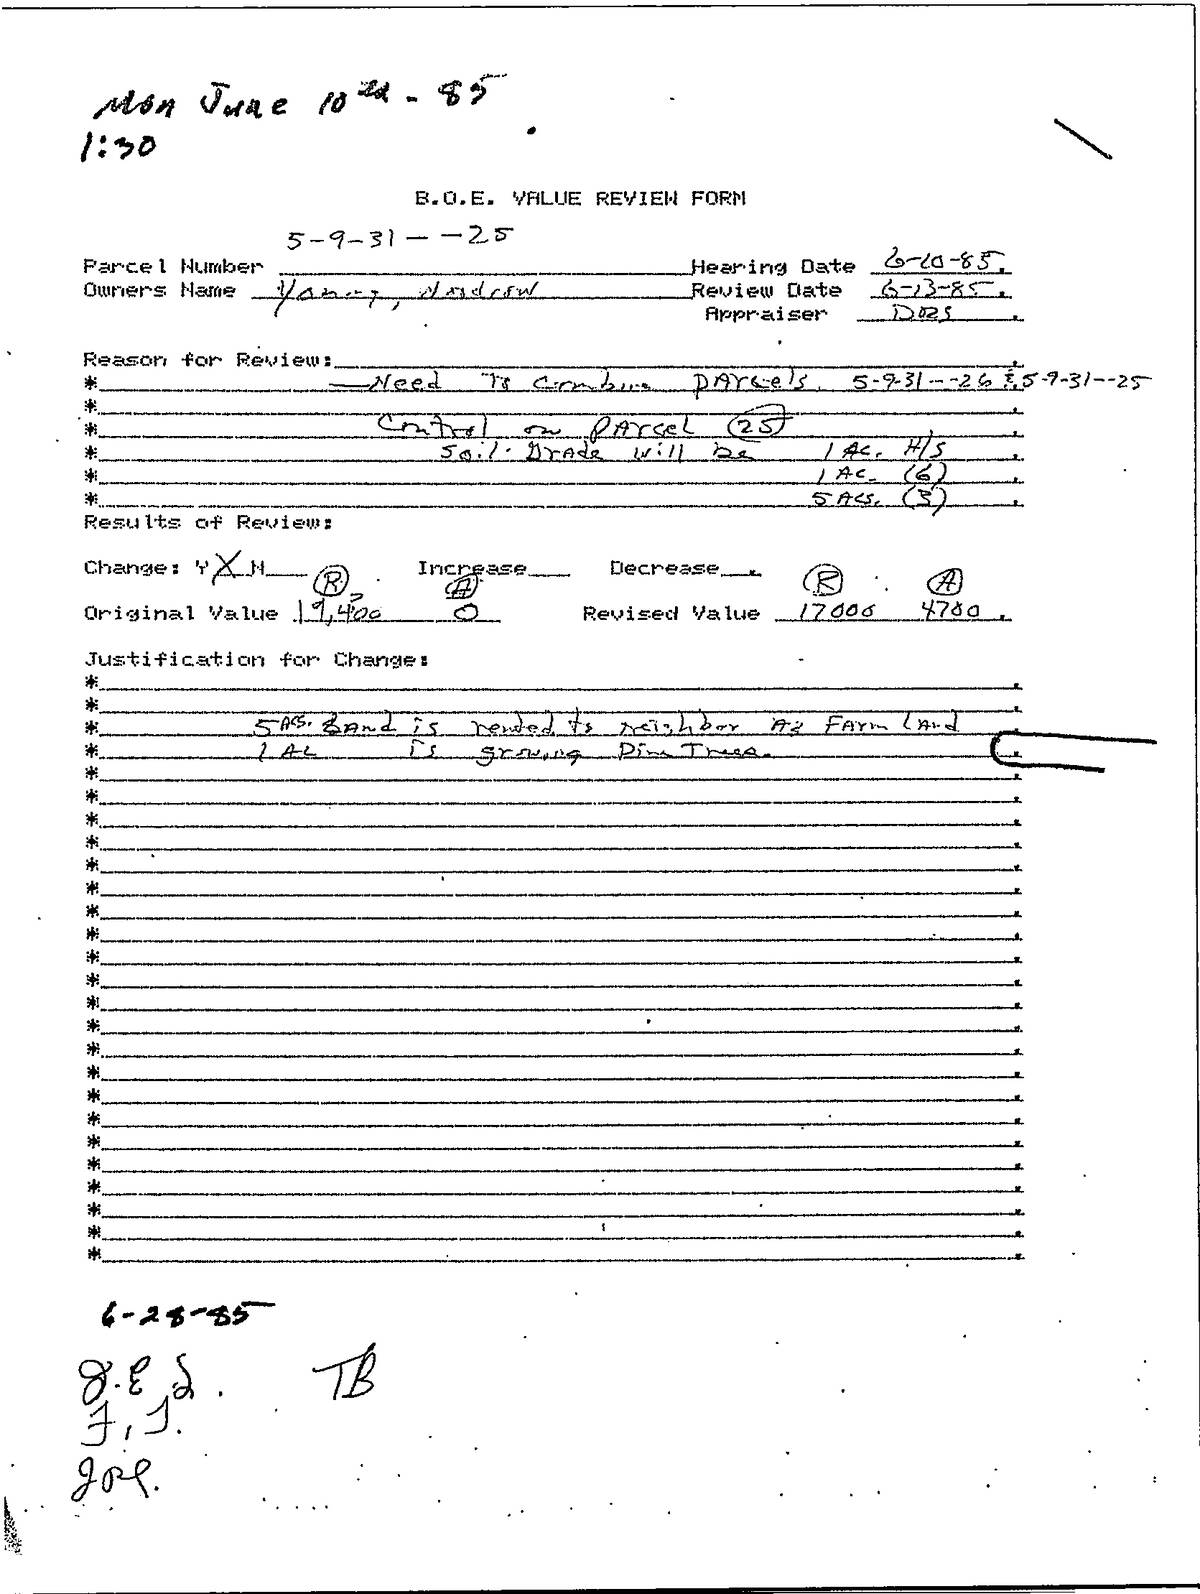 Mon June 10 - 85
1:30
B.O.E. VALUE REVIEW FORM
5-9-31 - -25
Parcel Number Hearing Date 6-10-85.
Owners Name Young, Woodrow Review Date 6-13-85.
Appraiser
Reason for Review:
* Need To Combine PARcels. 5-9-31--26 & 5-9-31--25
*
* Control on PARcel (25)
* Soil Grade will be 1 Ac. H/S
* 1 Ac. (6)
* 5 Acs. (3)
Results of Review:
Change: Y X N Increase Decrease .
(R) (A) (R) (A)
Original Value 19,400 0 Revised Value 17000 4700 .
Justification for Change:
*
*
* 5 Acs. Land is rented to neighbor As FARm LAnd
* 1 Ac is growing Pine Trees.
*
*
*
*
*
*
*
*
*
*
*
*
*
*
*
*
*
*
*
*
*
*
6-28-85
TB